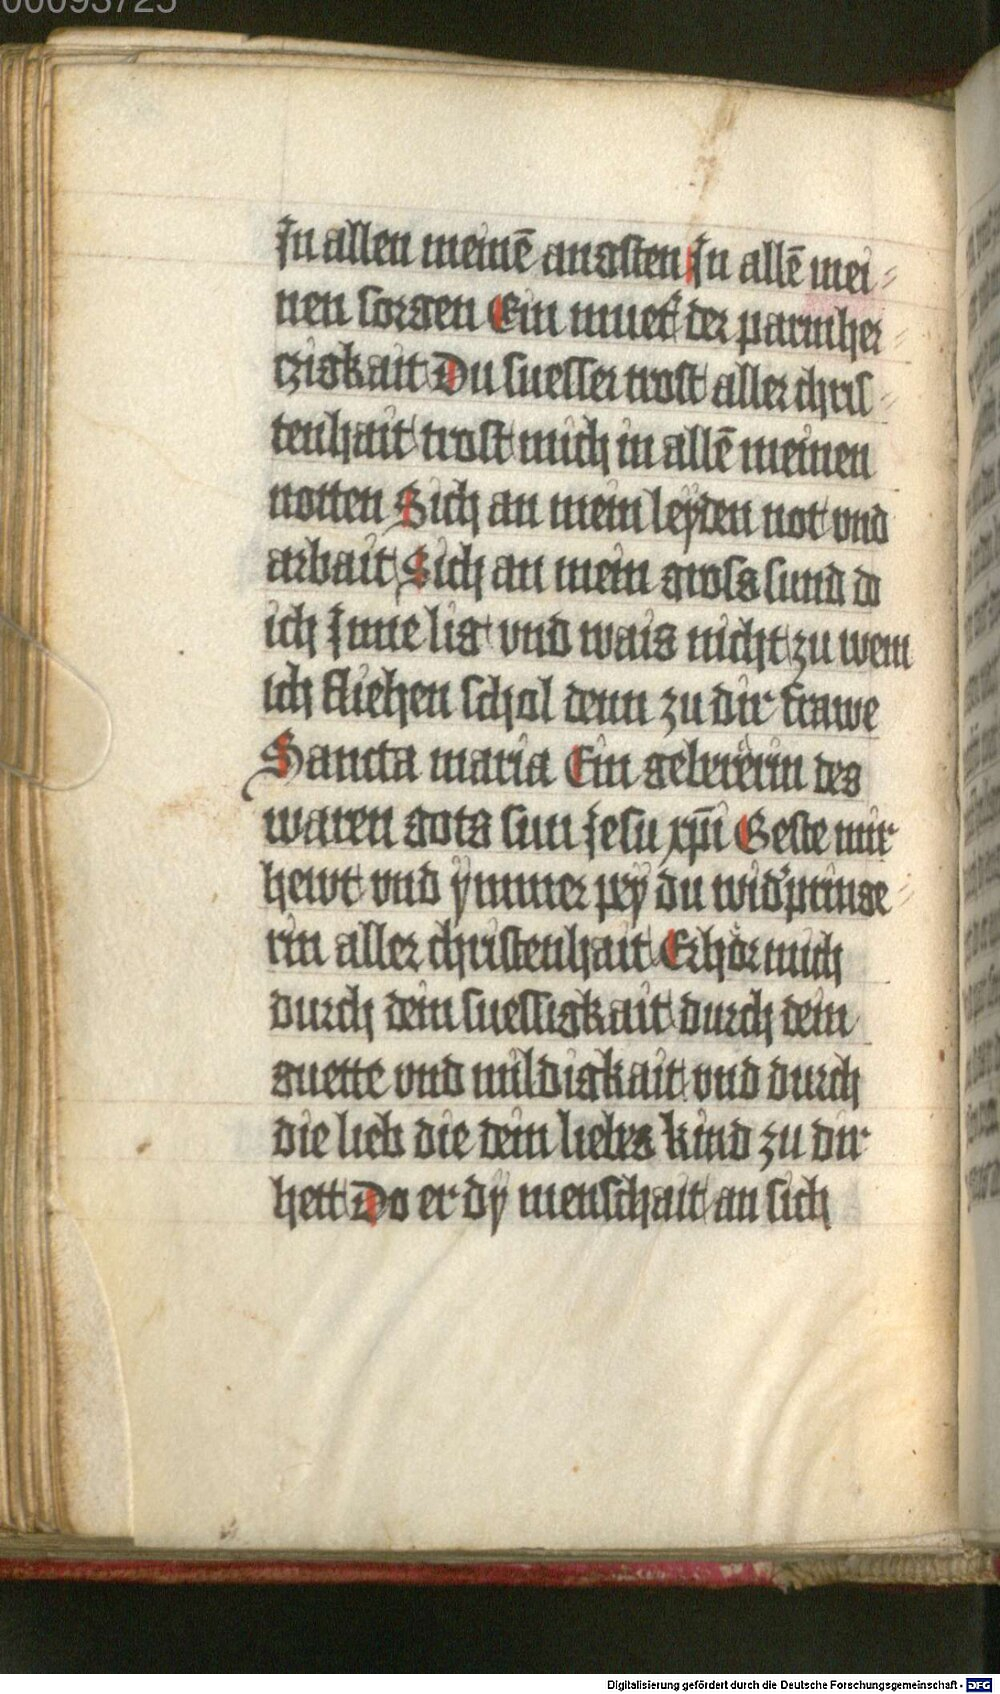 00093725
Jn allen meinē angsten Jn allē mei⸗
nen sorgen Ein muet͛ der parmher⸗
czigkait Du suesser trost aller chris⸗
tenhait trost mich in allē meinen
notten Sich an mein leÿden not vnd
arbait Sich an mein gross sund do
ich Jnne lig vnd wais nicht zu wem
ich fliehen schol denn zu dir frawe
Sancta maria Ein gebererin des
waren gots sun Jesu xp̄i Geste mir
hewt vnd ÿmmer peÿ du wid͛pringe⸗
rin aller christenhait Erhör mich
durch dein suessigkait durch dein
guette vnd mildigkait vnd durch
die lieb die dein liebes kind zu dir
hett Do er dÿ menschait an sich
Digitalisierung gefördert durch die Deutsche Forschungsgemeinschaft - DFG